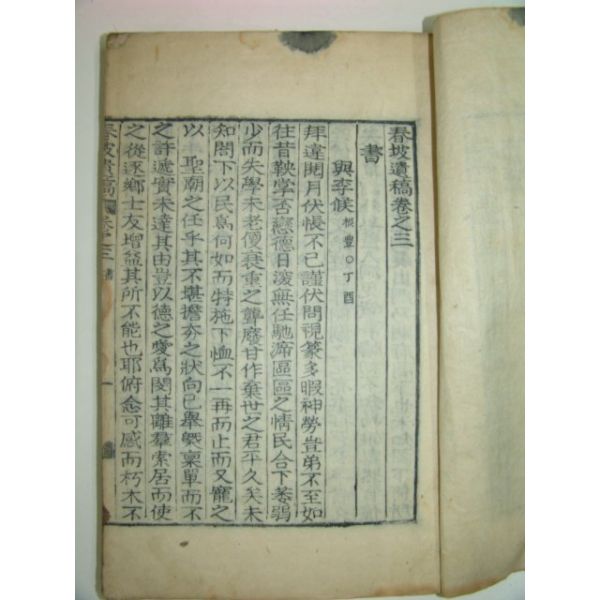 春坡遺稿卷之三
書
與李候 根豊○丁酉
拜違閱月伏悵不已謹伏問視篆多暇神勞豈弟不至如
往昔鞅掌否戀德日深無任馳溯區區之情民合下萎弱
少而失學未老僾衰重之聾廢甘作棄世之君平久矣未
知閤下以民爲何如而特施下恤不一再而止而又寵之
以 聖廟之任乎其不堪擔夯之狀向已舉槩稟單而不
之許遞實未達其由豈以德之愛爲閔其離羣索居而使
之從逐鄉士友增益其所不能也耶俯念可感而朽木不
春坡遺稿 卷之三 書 一